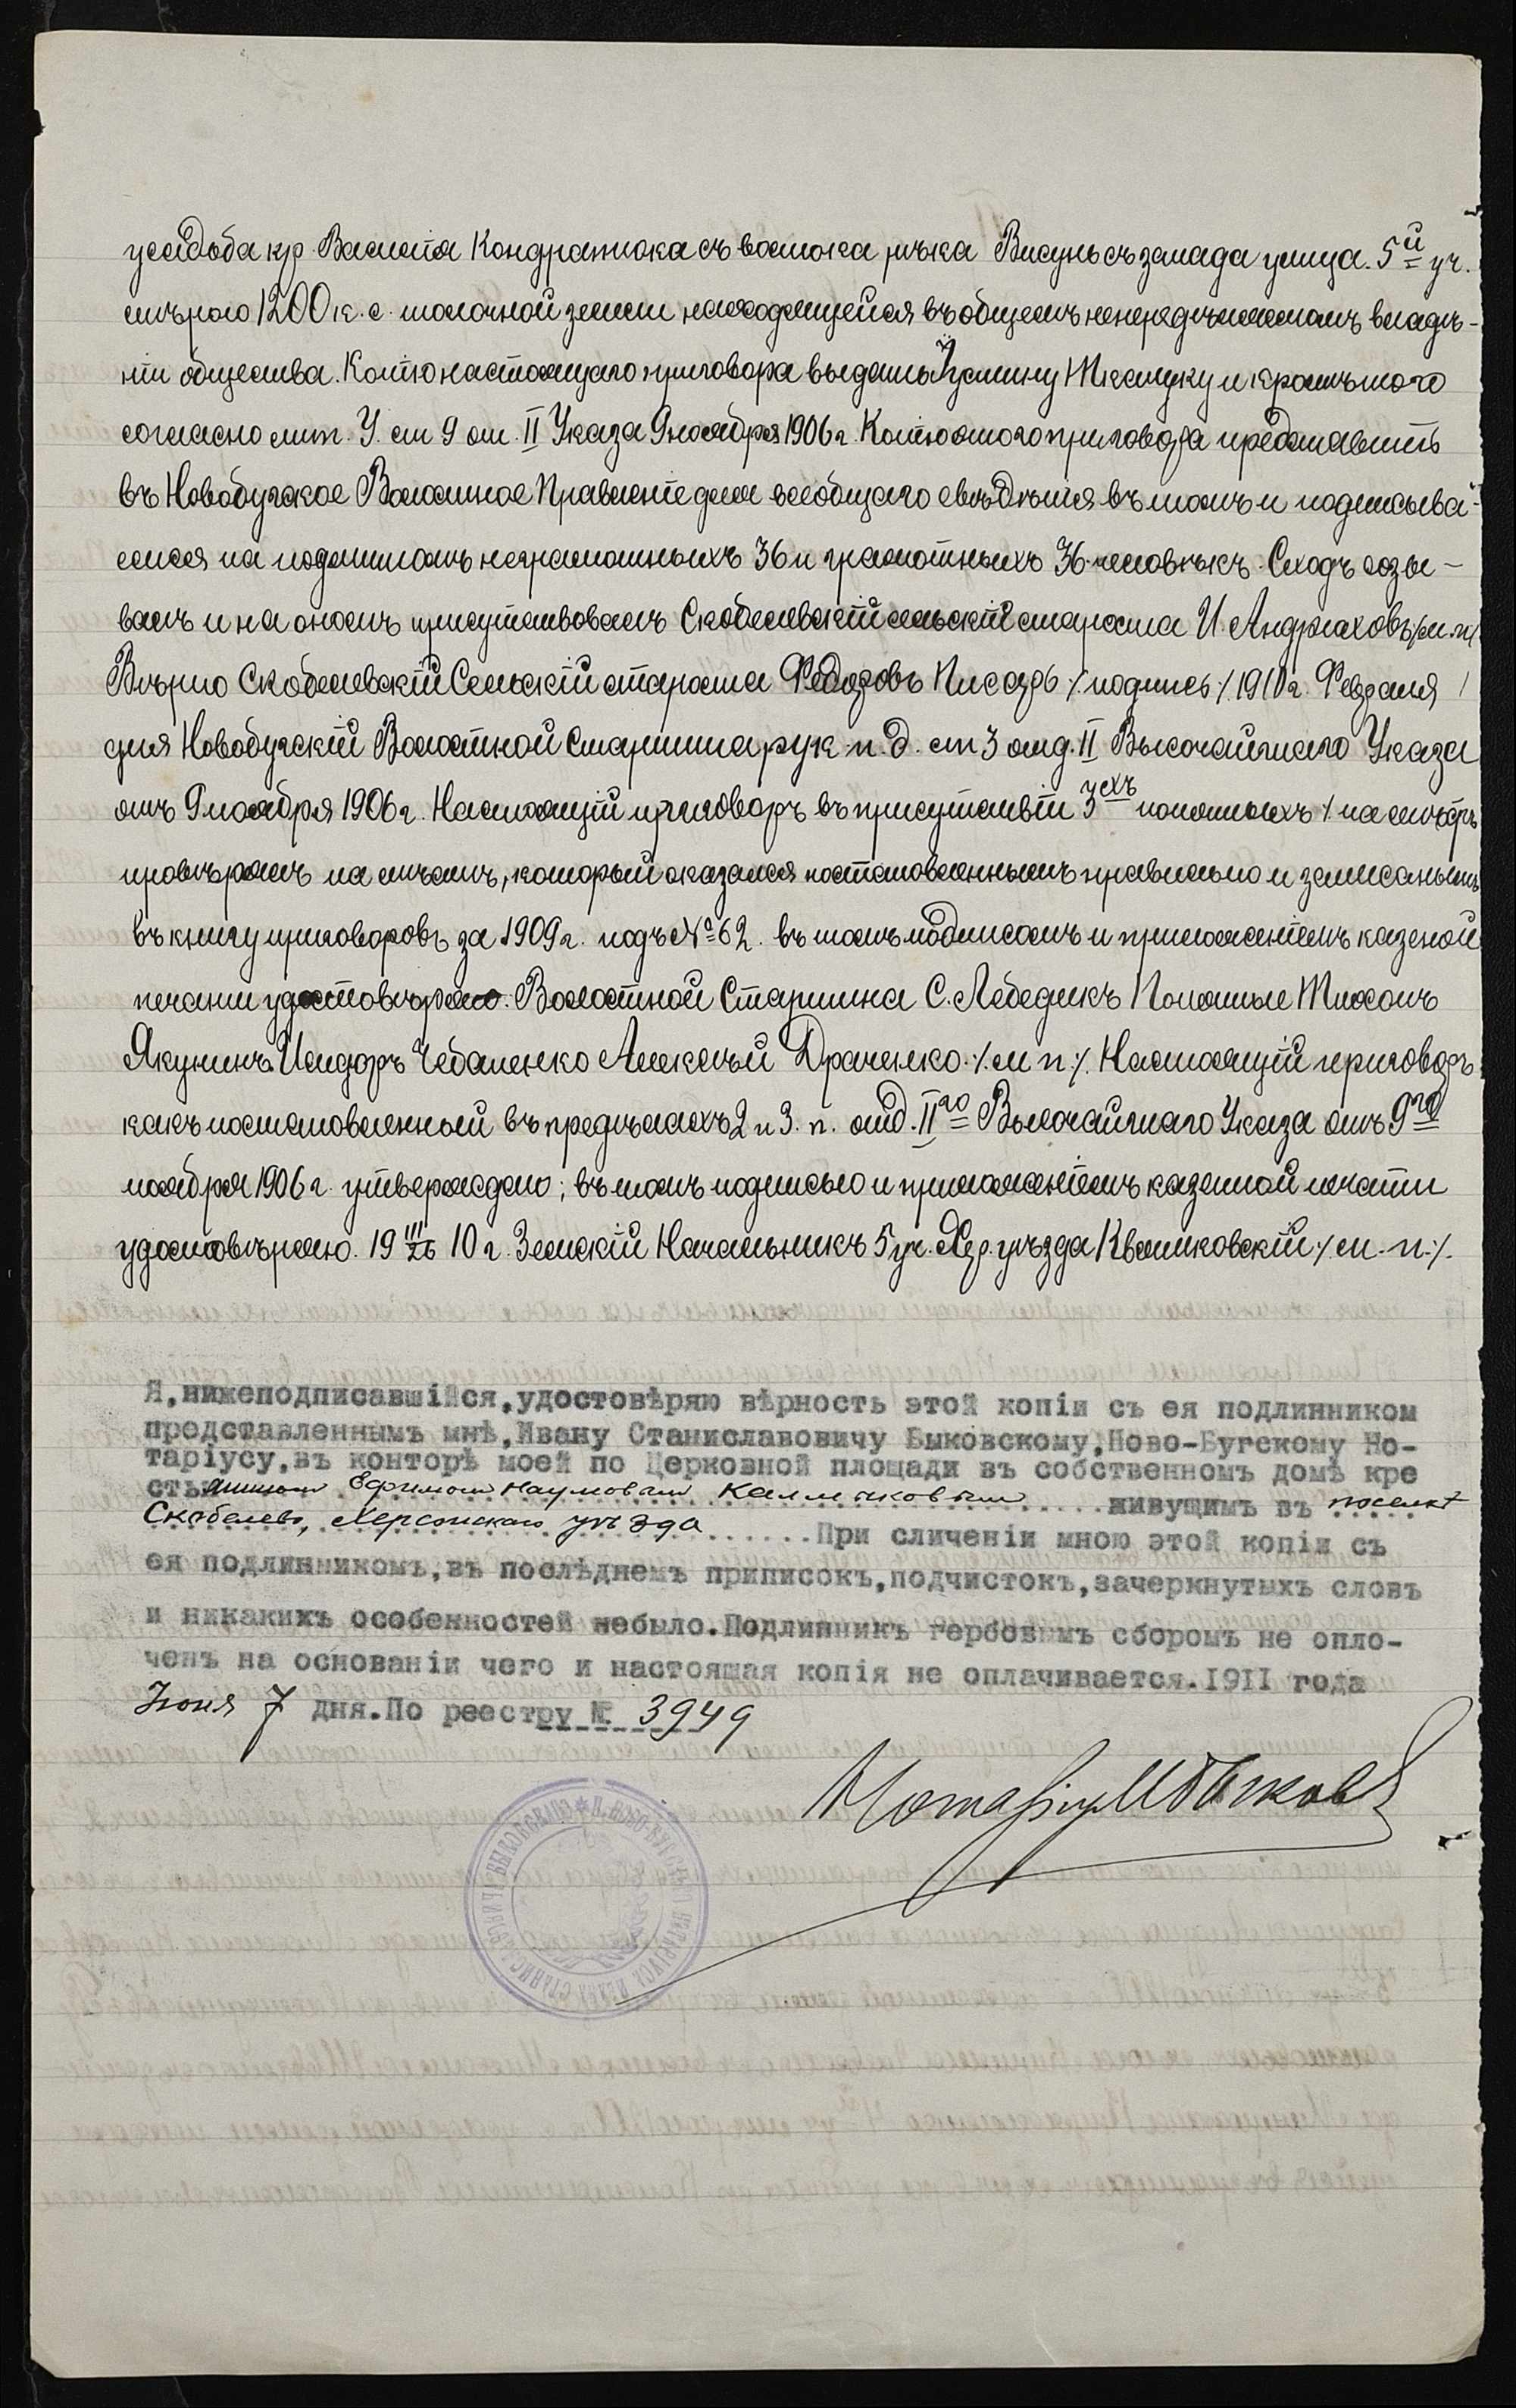 усадьба кр. Василія Кондратюка съ востока рѣка Висунь съ запада улица. 5й уч.
мѣрою 1200 к. с. толочной земли находящейся въ общемъ непередѣляемомъ владѣ-
ніи общества. Копію настоящаго приговора выдать Устину Ткачуку и кромѣ того
согласно лит. У. ст 9 от. II Указа 9 ноября 1906 г. Копію этого приговора представить
въ Новобугское Волостное Правленіе для всеобщаго свѣдѣнія въ томъ и подписыва-
емся на подлинномъ неграмотныхъ 36 и грамотныхъ 36 человѣкъ. Сходъ созы-
валъ и на ономъ присутствовалъ Скобелевскій сельскій староста И. Андріаховъ /м. п/
Вѣрно Скобелевскій Сельскій староста Федоровъ Писарь ·/. подпись ·/. 1910 г. Февраля 1
дня Новобугскій Волостной Старшина рук. п. д. ст 3 отд. II Высочайшаго Указа
отъ 9 ноября 1906 г. Настоящій приговоръ въ присутствіи 3ехъ понятыхъ
провѣрялъ на мѣстѣ, который оказался постановленнымъ правильно и записанымъ
въ книгу приговоровъ за 1909 г. подъ № 62. въ томъ подписомъ и приложеніемъ казеной
печати удостовѣряю. Волостной Старшина С. Лебедикъ Понятые Тихонъ
Якунинъ Исидоръ Чебаненко Алексѣй Драченко ·/. м п ·/. Настоящій приговоръ
какъ постановленный въ предѣлахъ 2 и 3. п. отд. IIго Высочайшаго Указа отъ 9го
ноября 1906 г. утверждаю; въ томъ подписью и приложеніемъ казенной печати
удостовѣряю. 19 III/26 10 г. Земскій Начальникъ 5 уч. Хер. уѣзда Квятковскій ·/. м. п. ·/.
Я, нижеподписавшійся, удостовѣряю вѣрность этой копіи съ ея подлинником
представленнымъ мнѣ, Ивану Станиславовичу Быковскому, Ново-Бугскому Но-
таріусу, въ конторѣ моей по Церковной площади въ собственномъ домѣ кре
стьяниномъ Ефимомъ Наумовымъ Калмыковымъ ..... живущимъ въ поселкѣ
Скобелево, Херсонскаго уѣзда ...... При сличеніи мною этой копіи съ
ея подлинникомъ, въ послѣднемъ приписокъ, подчистокъ, зачеркнутыхъ словъ
и никакихъ особенностей небыло. Подлинникъ гербовымъ сборомъ не опло-
ченъ на основаніи чего и настоящая копія не оплачивается. 1911 года
Іюня 7 дня. По реестру № 3949
Нотаріусъ И Быковск